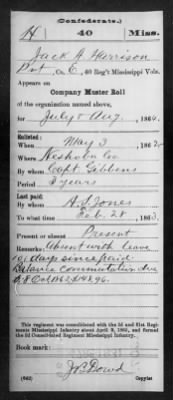 (Confederate.)
H 40 Miss.
Jack A. Harrison
Pvt, Co. E, 40 Reg't Mississippi Vols.
Appears on
Company Muster Roll
of the organization named above,
for July & Aug, 1864.
Enlisted:
When May 3, 1862.
Where Neshoba Co
By whom Capt Gibbens
Period 3 years
Last paid:
By whom A. S. Jones
To what time Feb. 28, 1863.
Present or absent Present
Remarks: Absent with leave
days since paid
Balance commutation due
This regiment was consolidated with the 3d and 31st Regiments Mississippi Infantry about April 9, 1865, and formed the 3d Consolidated Regiment Mississippi Infantry.
Book mark:
(642) Copyist.